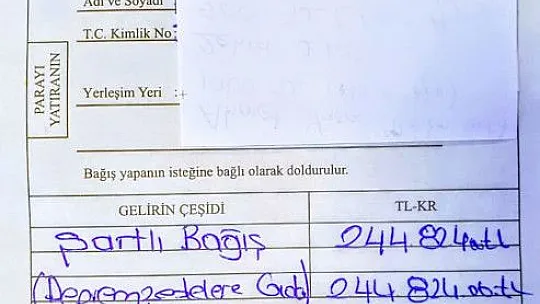 Adı ve Soyadı
T.C. Kimlik No:
PARAYI YATIRANIN
Yerleşim Yeri :
Bağış yapanın isteğine bağlı olarak doldurulur.
GELİRİN ÇEŞİDİ TL-KR
Şartlı Bağış 244.824.00.tl
(Depremzedelere Gıda) 244.824.00.tl